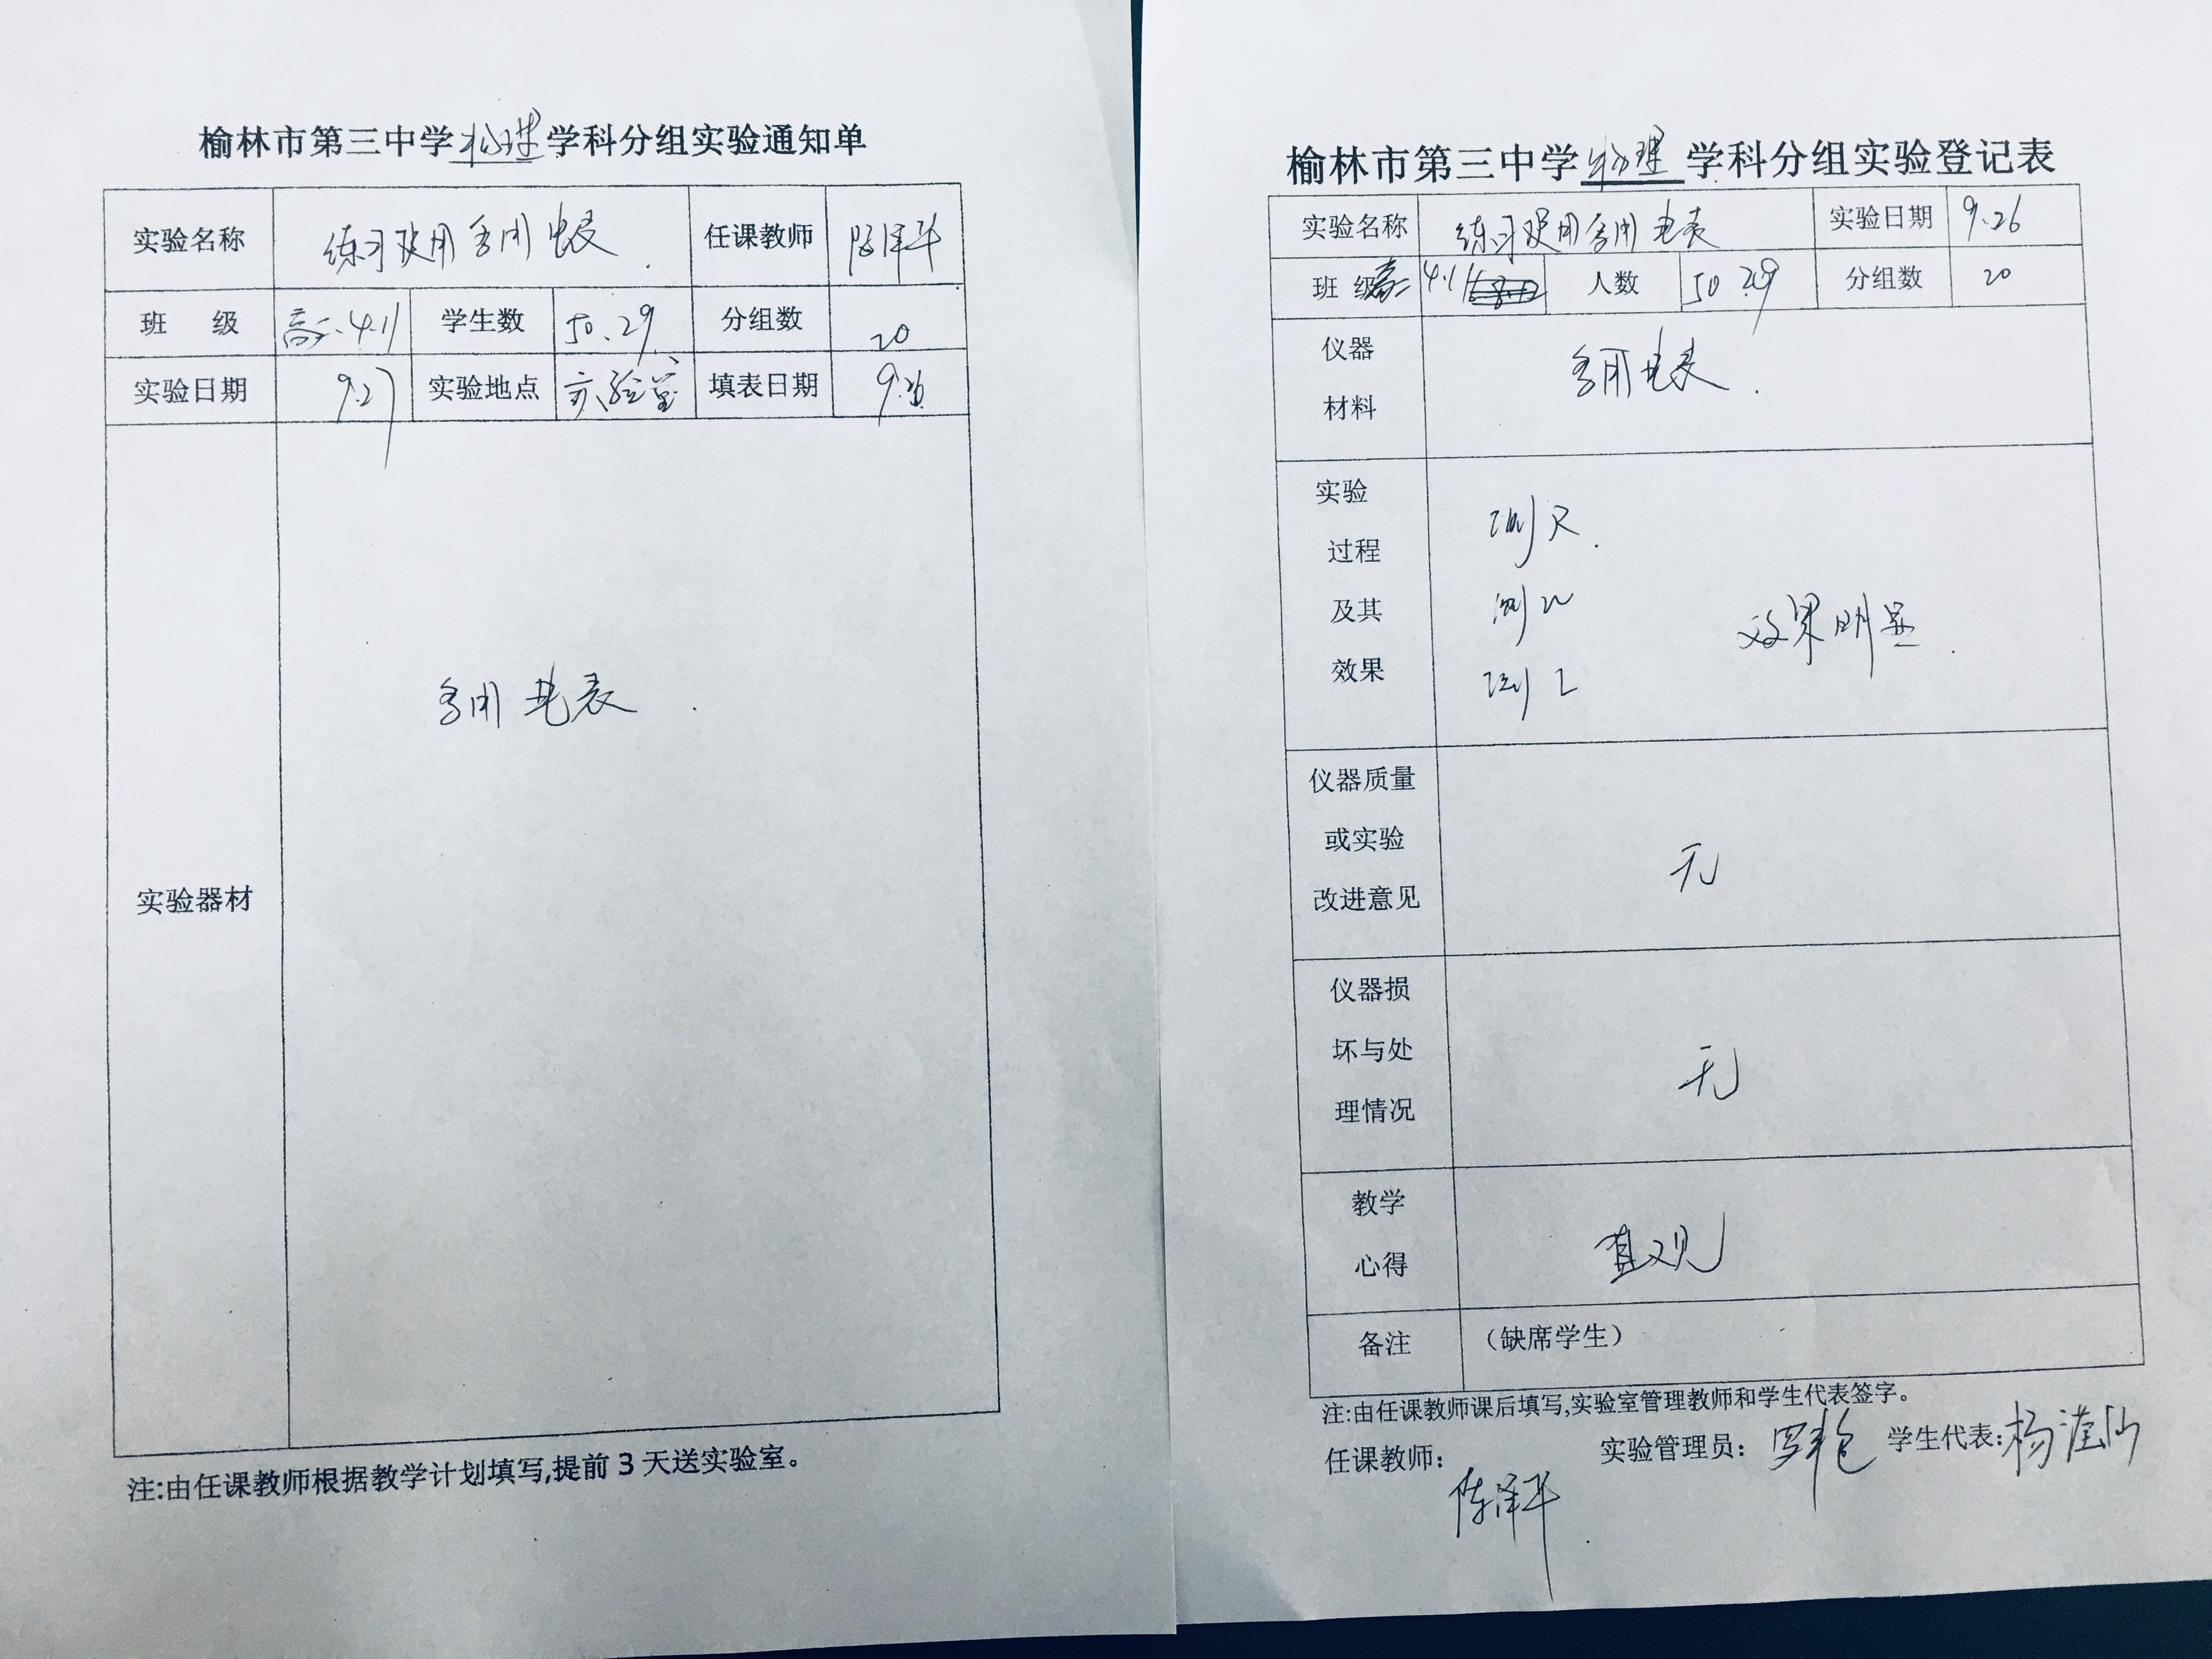 榆林市第三中学物理学科分组实验通知单
实验名称 练习使用多用电表. 任课教师 陈泽华
班 级 高二.4.11 学生数 50、29 分组数 20
实验日期 9.27 实验地点 实验室 填表日期 9.26
实验器材 多用电表.
注:由任课教师根据教学计划填写,提前3天送实验室。
榆林市第三中学物理学科分组实验登记表
实验名称 练习使用多用电表 实验日期 9.26
班 级 高二 4.11 人数 50 29 分组数 20
仪器
材料
多用电表.
实验
过程
及其
效果
测R.
测U
测I
效果明显.
仪器质量
或实验
改进意见
无
仪器损
坏与处
理情况
无
教学
心得
直观
备注 （缺席学生）
注:由任课教师课后填写,实验室管理教师和学生代表签字。
任课教师: 陈泽华 实验管理员: 学生代表: 杨